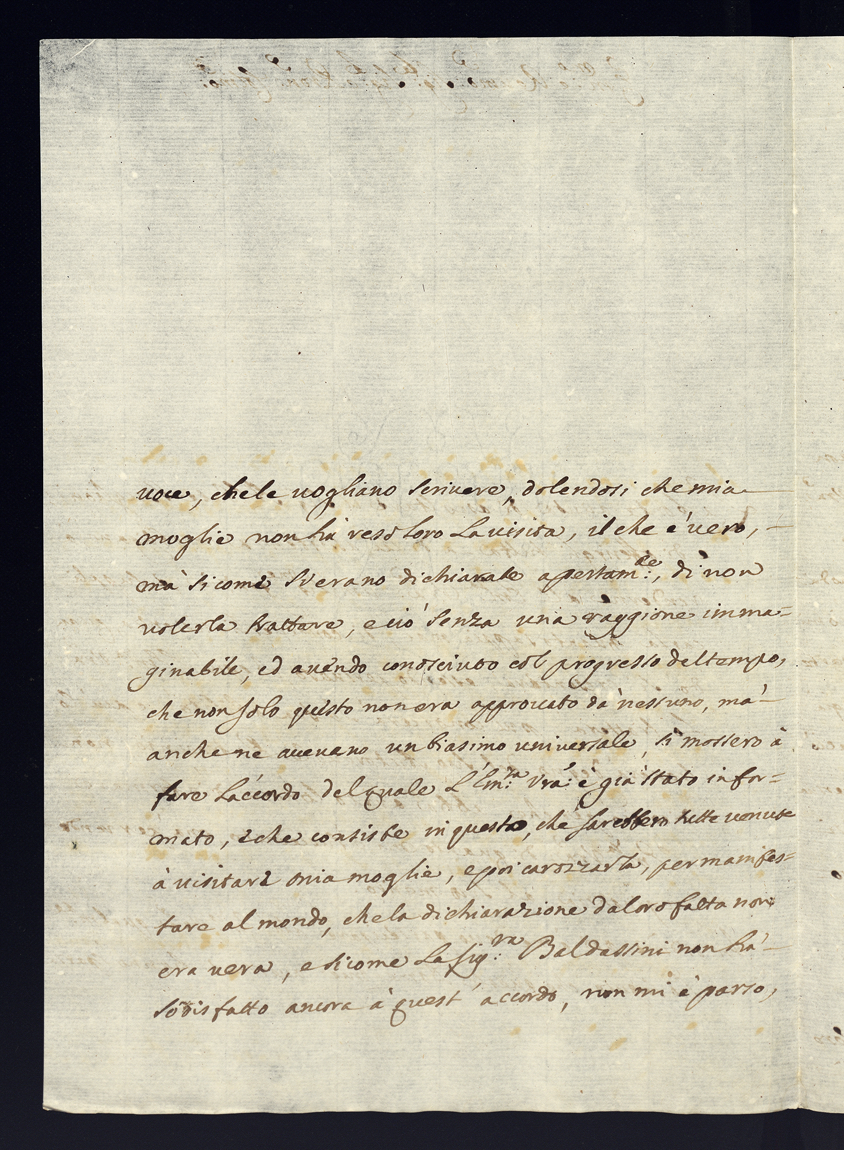 voce, che le vogliano scrivere, dolendosi che mia
moglie non hà reso loro la visita, il che è vero,
mà sicome s'erano dichiarate apertam.te, di non
volerla trattare, e ciò senza una raggione imma=
ginabile, ed avendo conosciuto col progresso del tempo,
che non solo questo non era approvato dà nessuno, mà
anche ne avevano un biasimo universale, si mossero à
fare l'accordo del quale L'Em.za Vra: è già stato infor=
mato, e che consiste in questo, che sarebbero tutte venute
à visitare mia moglie, e poi carozzarla, per manifes=
tare al mondo, che la dichiarazione da loro fatta non
era vera, e sicome la Sig.ra Baldassini non hà
sodisfatto ancora à quest' accordo, non mi è parso,